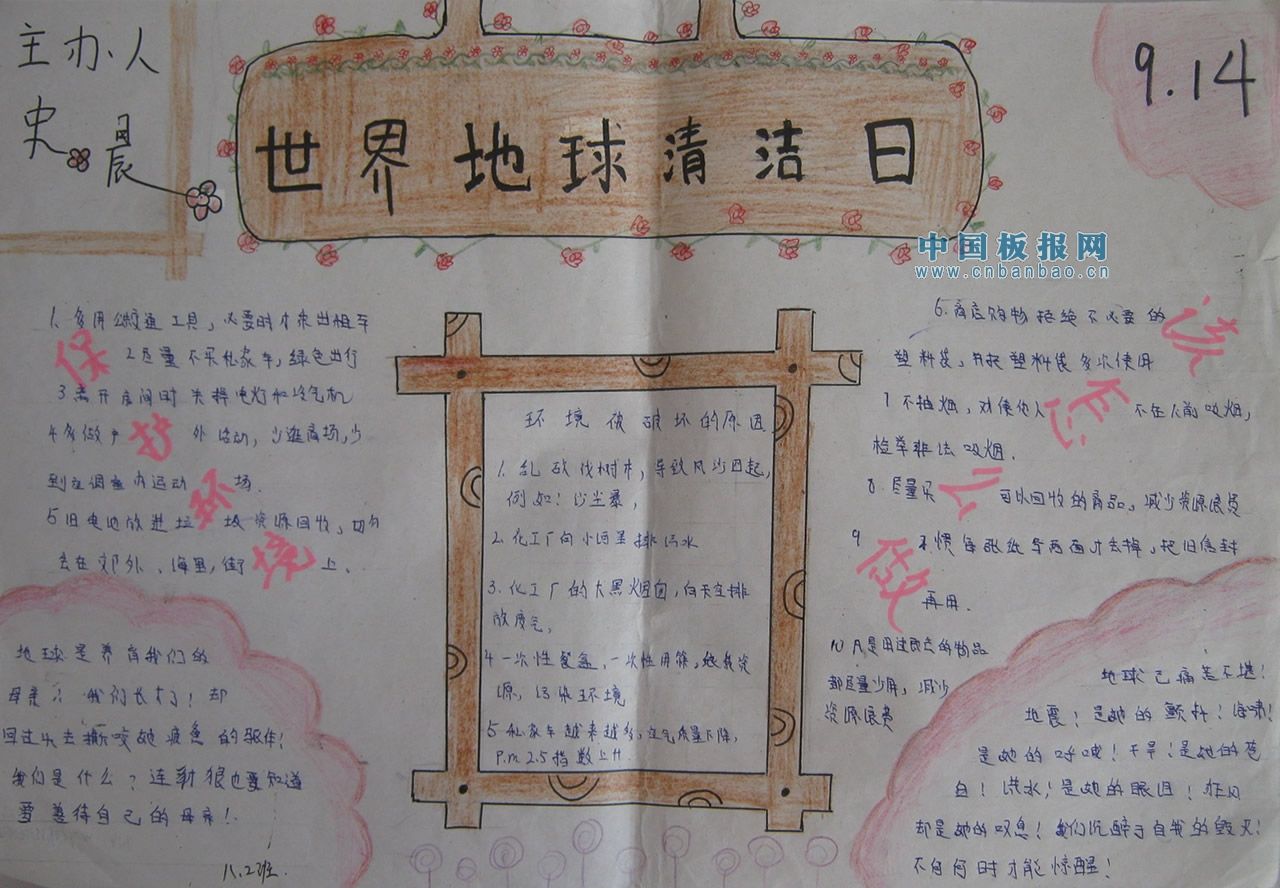 主办人
史晨
世界地球清洁日
9.14
中国板报网
www.cnbanbao.cn
保护环境
1.多用公共交通工具,必要时才乘出租车
2尽量不买私家车,绿色出行
3离开房间时关掉电灯和冷气机
4多做户外活动,少逛商场,少
到空调室内运动场.
5旧电池放进垃圾资源回收,切勿
丢在郊外、海里,街上、
环境被破坏的原因
1.乱砍伐树木,导致风沙四起,
例如:沙尘暴,
2.化工厂向小河里排污水
3.化工厂的大黑烟囱,向天空排
放废气,
4一次性餐盒,一次性用筷,
源,污染环境
5私家车越来越多,空气质量下降,
P.m.2.5指数上升
该怎么做
6.商店购物拒绝不必要的
塑料袋,并把塑料袋多次使用
7不抽烟,对他人 不在人前吸烟,
检举非法吸烟.
8.尽量买可以回收的商品,减少资源浪费
9 每张纸写两面才丢掉,把旧信封
再用.
10凡是用过即弃的物品
都尽量少用,减少
资源浪费
地球是养育我们的
母亲?我们长大了!却
回过头去撕咬她疲惫的躯体!
我们是什么?连豺狼也要知道
要善待自己的母亲!
八.2班.
地球已痛苦不堪!
地震!是她的颤抖!海啸!
是她的呼喊!干旱!是她的苍
白!洪水!是她的眼泪!狂风
却是她的叹息!我们沉醉于自我的毁灭!
不知何时才能惊醒!